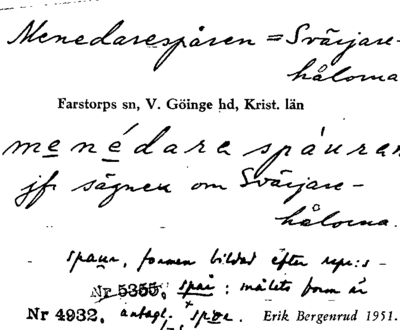 Menedarespåren = Svärjare-
hålorna
Farstorps sn, V. Göinge hd, Krist. län
menédara spåuran
jfr sägnen om Svärjare-
hålorna.
spaur, formen bildad efter repr:s -
Nr 5355, spår : målets form är
Nr 4932. antagl. spor. Erik Bergenrud 1951.